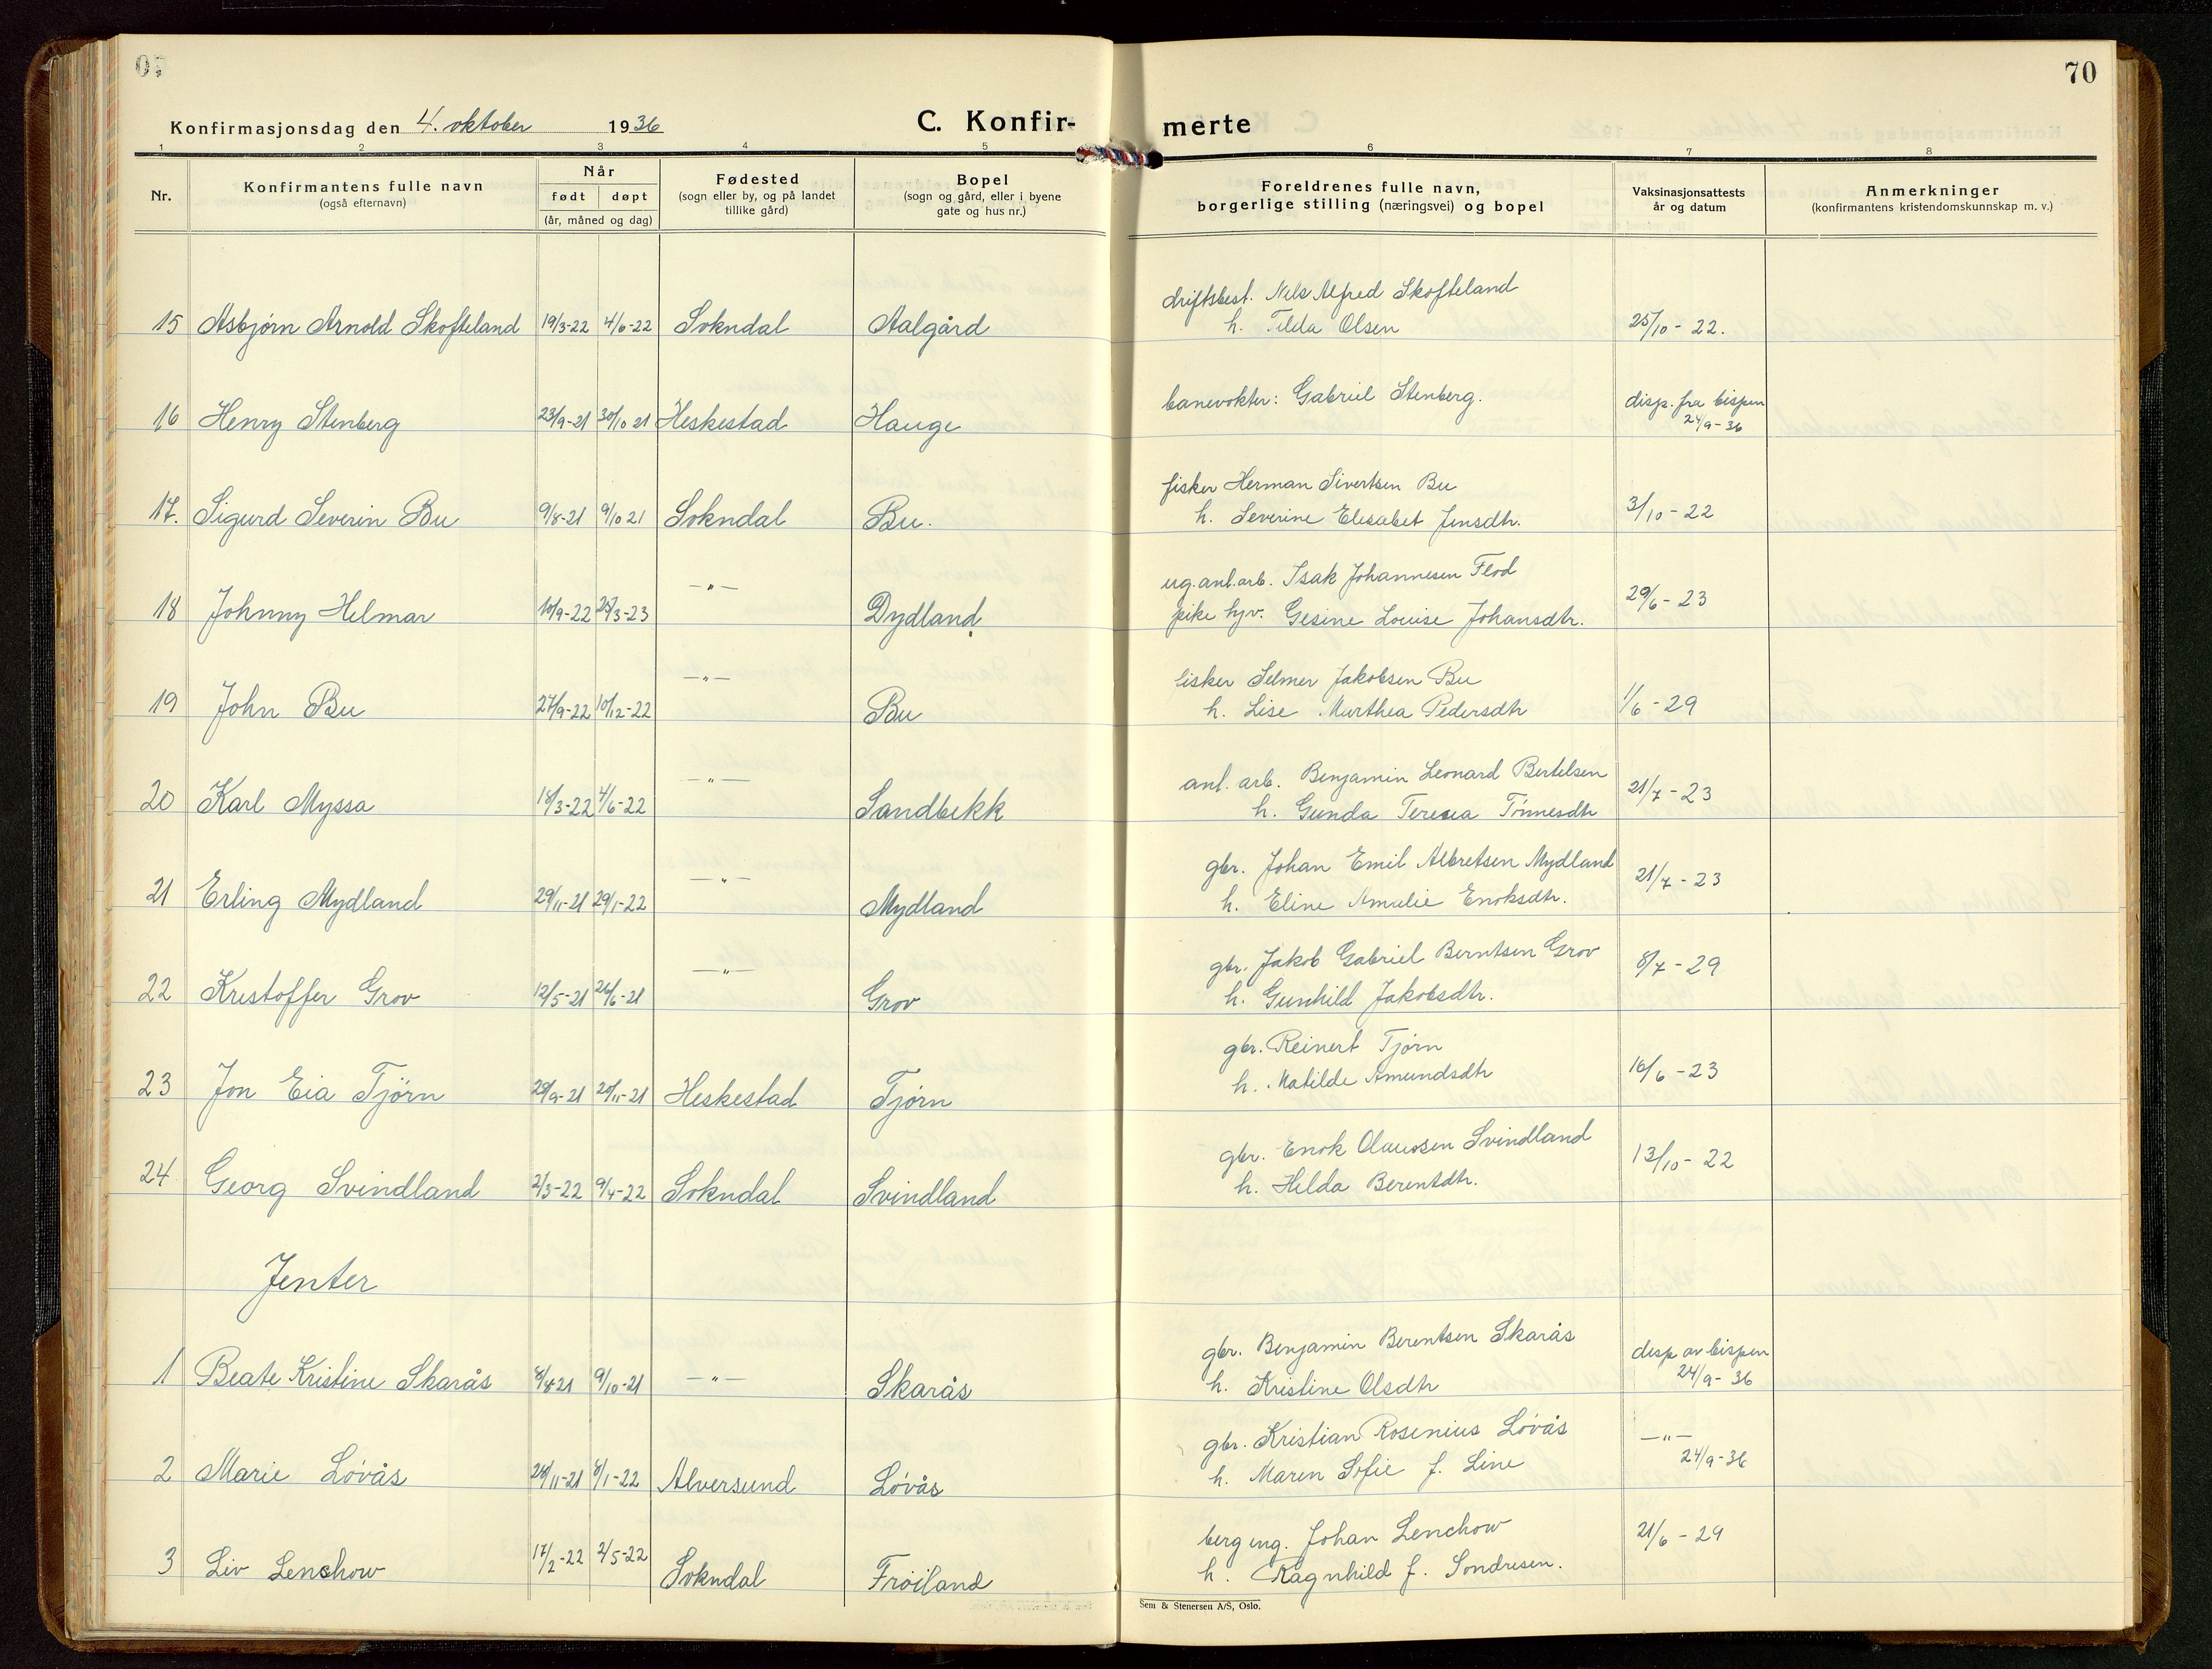 70
Konfirmasjonsdag den 4. oktober 1936
C. Konfir-
merte
1 2 3 4 5 6 7 8
Nr. Konfirmantens fulle navn (også efternavn) Når født døpt (år, måned og dag) Fødested (sogn eller by, og på landet tillike gård) Bopel (sogn og gård, eller i byene gate og hus nr.) Foreldrenes fulle navn, borgerlige stilling (næringsvei) og bopel Vaksinasjonsattests år og datum Anmerkninger (konfirmantens kristendomskunnskap m. v.)
driftsbest. Nils Alfred Skofteland
15 Asbjørn Arnold Skofteland 19/3-22 4/6-22 Sokndal Aalgård h. Tilda Olsen 25/10-22.
banevokter: Gabriel Stenberg. disp. fra bispen
16 Henry Stenberg 23/9-21 30/10 21 Heskestad Hauge 24/9-36
fisker Herman Sivertsen Bu
17. Sigurd Severin Bu 9/8-21 9/10 21 Sokndal Bu. h. Severine Elisabet Jensdtr. 3/10-22
ug. anl. arb. Isak Johannesen Flod
18 Johnny Helmar 10/9-22 25/3-23 -"- Dydland pike hjv. Gesine Louise Johansdtr. 29/6-23
fisker Selmer Jakobsen Bu
19 John Bu 27/9-22 10/12-22 -"- Bu h. Lise Marthea Pedersdtr 1/6-29
anl. arb. Benjamin Leonard Bertelsen
20 Karl Myssa 18/3-22 4/6-22 -"- Sandbekk h. Gunda Teresea Tønnesdtr 21/7-23
gbr. Johan Emil Albretsen Mydland
21 Erling Mydland 29/11-21 29/1-22 -"- Mydland h. Eline Amalie Enoksdtr. 21/7-23
gbr. Jakob Gabriel Berntsen Grov
22 Kristoffer Grov 12/5-21 26/6-21 -"- Grov h. Gunhild Jakobsdtr. 8/7-29
gbr. Reinert Tjørn
23 Jon Eia Tjörn 25/9-21 20/11-21 Heskestad Tjørn h. Matilde Amundsdtr 16/6-23
gbr. Enok Olaussen Svindland
24 Georg Svindland 2/3-22 9/4-22 Sokndal Svindland h. Hilda Berentdtr. 13/10-22
Jenter
gbr. Benjamin Berentsen Skarås disp av bispen
1 Beate Kristine Skarås 8/8-21 9/10-21 -"- Skarås h. Kristine Olsdtr 24/9-36
gbr. Kristian Rosenius Løvås -"-
2 Marie Løvås 28/11-21 8/1-22 Alversund Løvås h. Maren Sofie f. Line 24/9-36
berg ing. Johan Lenchow
3 Liv Lenschow 17/2-22 2/5-22 Sokndal Frøiland h. Ragnhild f. Sondresen. 21/6-29
Sem & Stenersen A/S, Oslo.